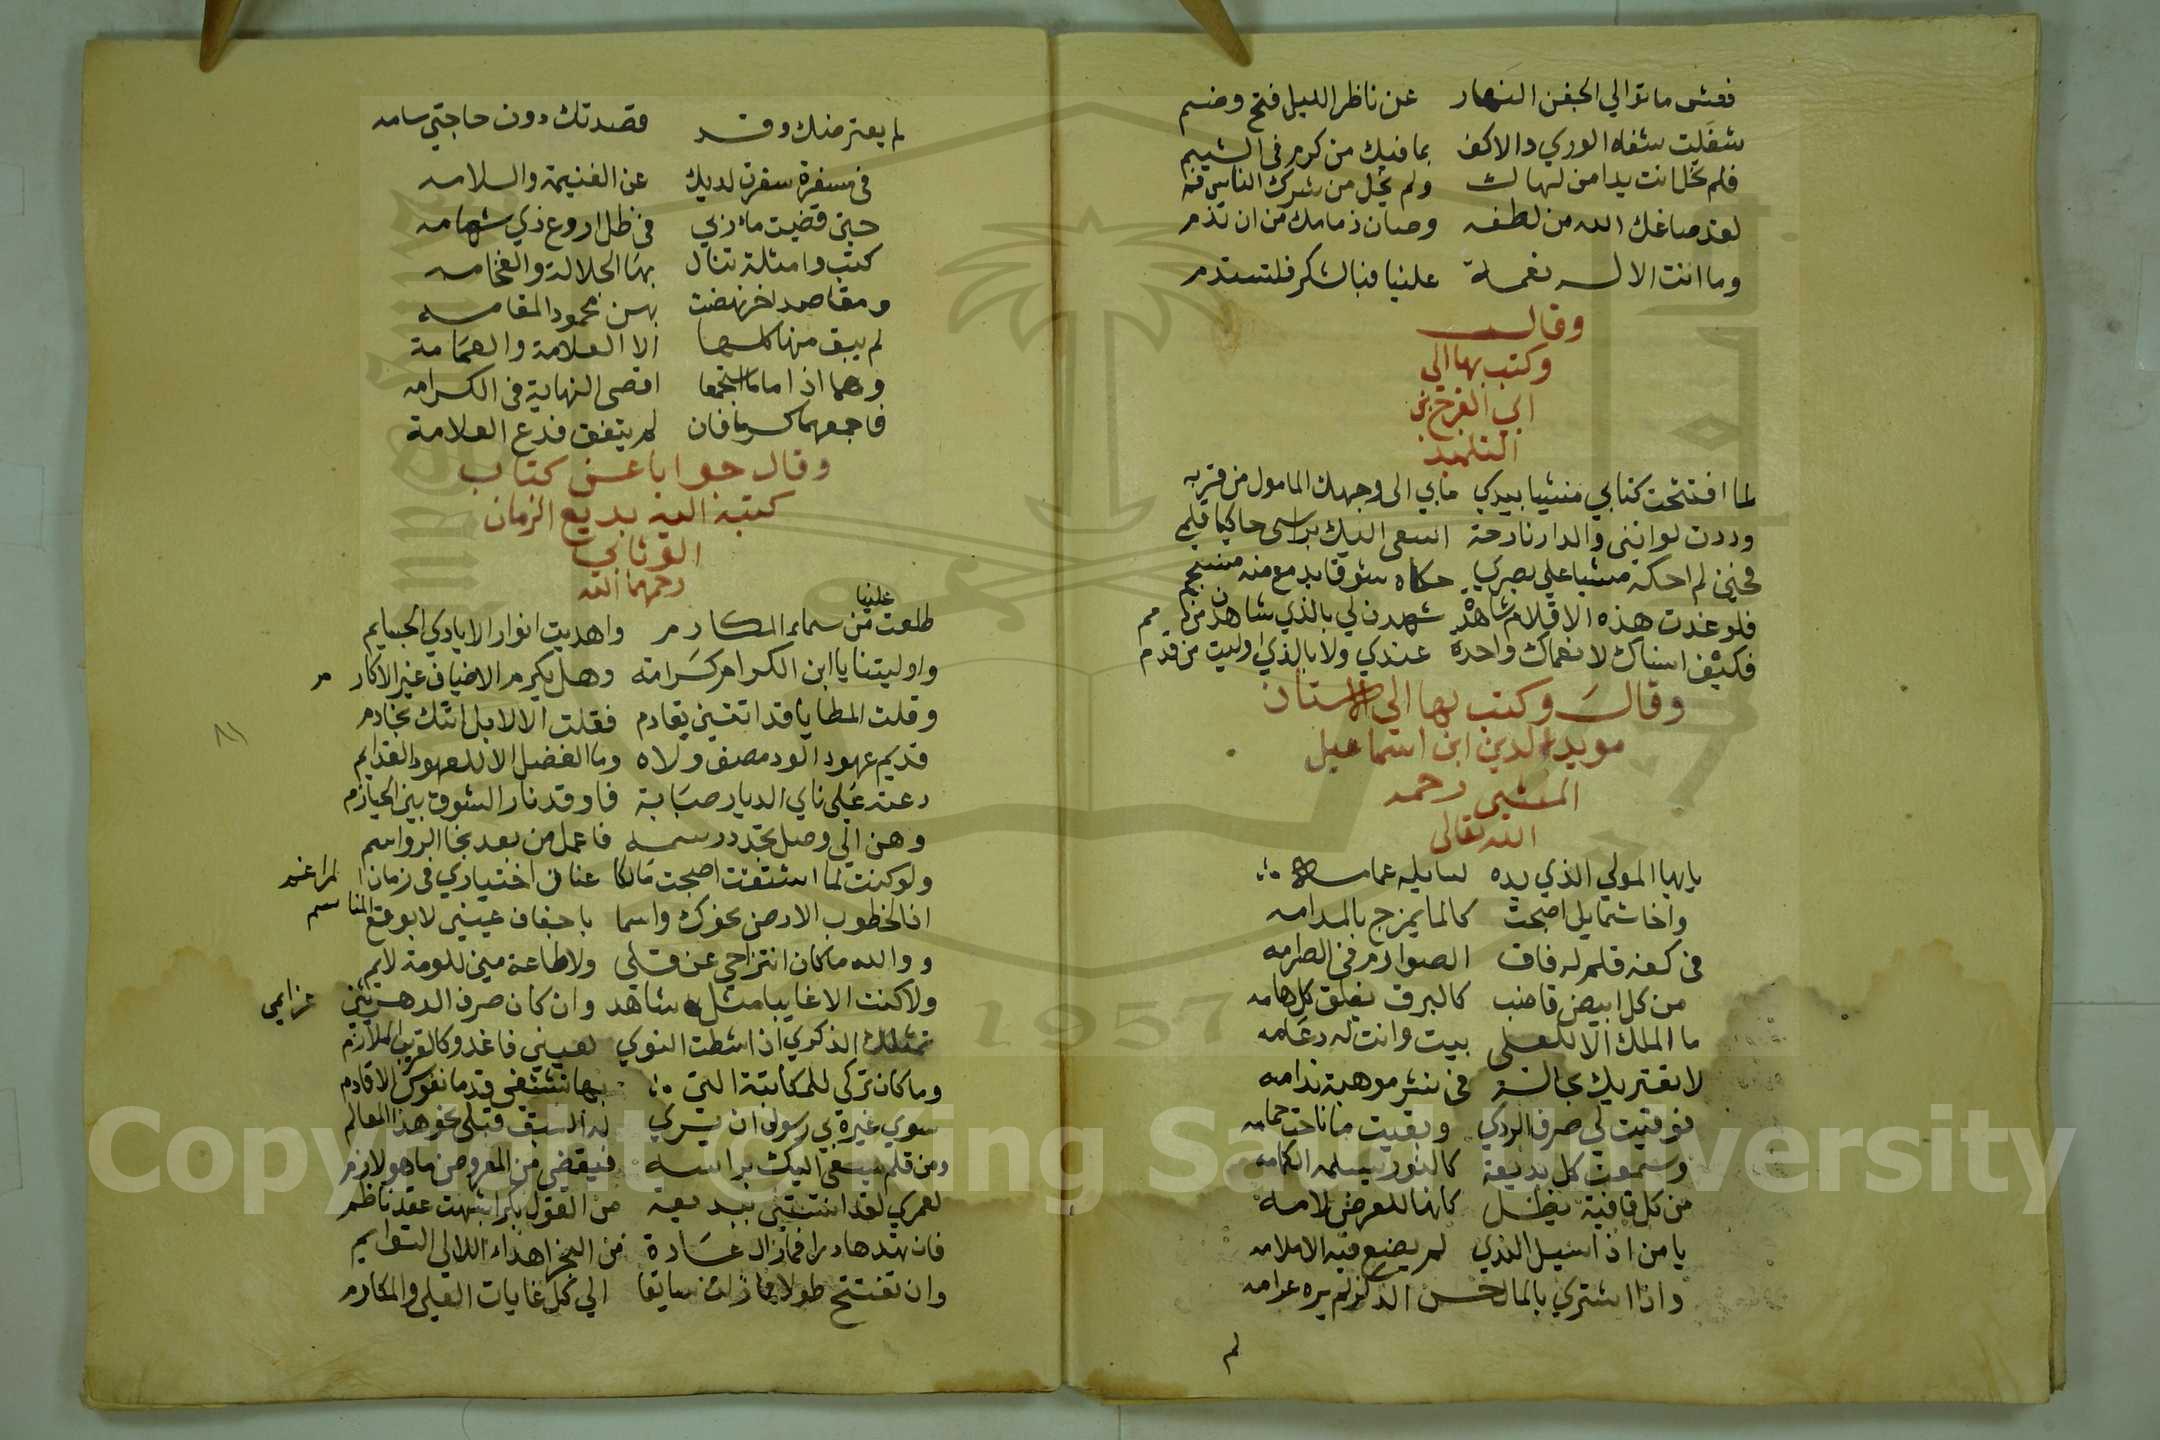 فعش ما توالي لجفن النهار عن ناظر الليل فتح وضم
شغلت شفاه الوري والاكف بما فيك من كرم في الشيم
فلم تخل انت يدا من لهاك ولم يخل من شكرك الناس فم
لقد صاغك الله من لطفه وصان ذمامك من ان تذم
وما انت الا له نعمة علينا فبالشكر فلتستدم
وقال
وكتب بها الي
ابي الفرج بن
التلميذ
لما افتتحت كتابي منشيا بيدي مابي الي وجهك المامول من قربه
وددت لوانني والدار نازحة اسعي اليك براسي حاكيا قلمي
فحين لم احكه مشيا علي بصري حكاه شوقا بدمع منه منسجم
فلو غدت هذه الاقلام شاهدة شهدن لي بالذي شاهدن من
فكيف انساك لا نعماك واحدة عندي ولا بالذي اوليت من قدم
وقال وكتب بها الي
مويد الدين ابن اسماعيل
المنشي رحمه
الله تعالي
يا ايها المولي الذي يده لسايله غمامه
واخا شمايل اصبحت كالما يمزج بالمدامه
في كفه قلم له فاق الصوارم في الصرامه
من كل ابيض قاضب كالبرق يفلق كل هامه
ما الملك الا للعلي بيت وانت له دعامه
لا يعتريك بحالة في نشر موهبة ندامه
فوقيت لي صرف الردي وبقيت ما ناحت حمامه
وسمعت كل بديعة كالنور يسلمه الكمامه
من كل قافية يظل كانها للعرض لامه
يا من اذا سيل الندي لم يضع فيه الا ملامه
واذا اشتري بالمال حسن الذكر لم يره غرامه
لم
لم يعترضك وقد قصدتك دون حاجتي سامه
في سفرة سفرت لديك عن الغنيمة والسلامه
حتي قضيت مآربي في ظل اروع ذي شهامه
كتب وامثلة تنال بها الجلالة والفخامه
ومقاصد اخر نهضت بهن محمود المقامه
لم يبق منها كلها الا العلامة والعمامة
وهما اذا ما استجمعا اقصي النهاية في الكرامه
فاجمعهما كرما فان لم يتفق فدع العلامة
وقال جوابا عن كتاب
كتبه اليه بديع الزمان
رحمهما الله
طلعت علينا من سماء المكارم واهديت انوار الايادي الجسايم
واوليتنا يا ابن الكرام كرامة وهل يكرم الاضياف غير الاكارم
وقلت المطايا قد اتتني بقادم فقلت الا لا بل اتتك بخادم
قديم عهود الود مصف ولاه وما الفضل الا للعهود القدايم
دعته علي ناي الديار صبابة فاوقد نار الشوق بين الحيازم
وهن الي وصل تجدد رسمه فاعمل من بعد نجا الرواسم
ولو كنت لما اشتقت اصبحت مالكا عنان اختياري في زمان المراغم
اذا لخطوب الارض نحوك واسما باجفان عيني لا بوقع المناسم
ووالله ما كان انتزاحي عن قلي ولا طاعة مني للومة لايم
ولا كنت الا غايبا مثل شاهد وان كان صرف الدهر يثني عزايمي
تمثلك الذكري اذا شطت النوي لعيني فاغدو كالقريب الملازم
وما كان تركي للمكاتبة التي بها تشتفي قدما نفوس الاقادم
سوي غيرة بي رسولي ان يري له السبق قبلي نحو هذا المعالم
ومن قلم يسعي اليك براسه فيقضي من المعروض ما هو لازم
لعمري لقد انتبتني ببديعة من القول بكرا اشبهت عقد ناظم
فان تهدها درا فما زال عادة من البحر اهداء اللالي التوايم
وان تفتتح طولا فما زلت سابقا الي كل غايات العلي والمكارم
٨١
Copyright © King Saud University
1957